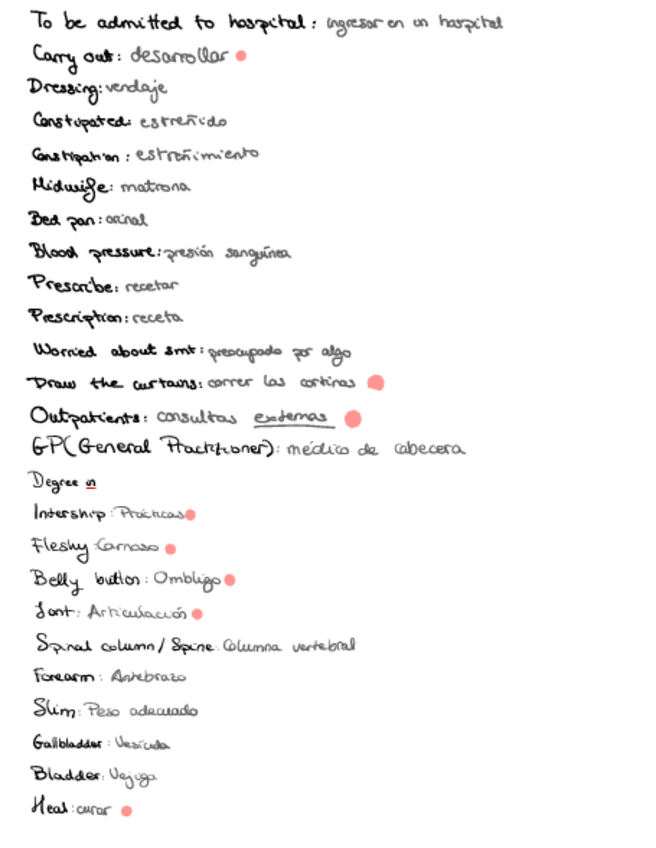 To be admitted to hospital: ingresar en un hospital
Carry out: desarrollar
Dressing: vendaje
Constupated: estreñido
Constipation: estreñimiento
Midwife: matrona
Bed pan: orinal
Blood pressure: presión sanguínea
Prescribe: recetar
Prescription: receta
Worried about smt: preocupado por algo
Draw the curtains: correr las cortinas
Outpatients: consultas externas
GP (General Practitioner): médico de cabecera
Degree in
Intership: Prácticas
Fleshy: Carnoso
Belly button: Ombligo
Joint: Articulación
Spinal column/Spine: Columna vertebral
Forearm: Antebrazo
Slim: Peso adecuado
Gallbladder: Vesícula
Bladder: Vejiga
Heal: curar